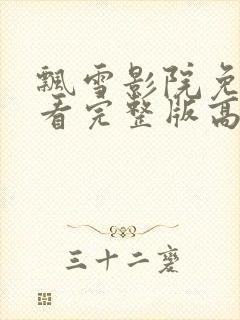 飘雪影院免
看完整版高
三十二磨